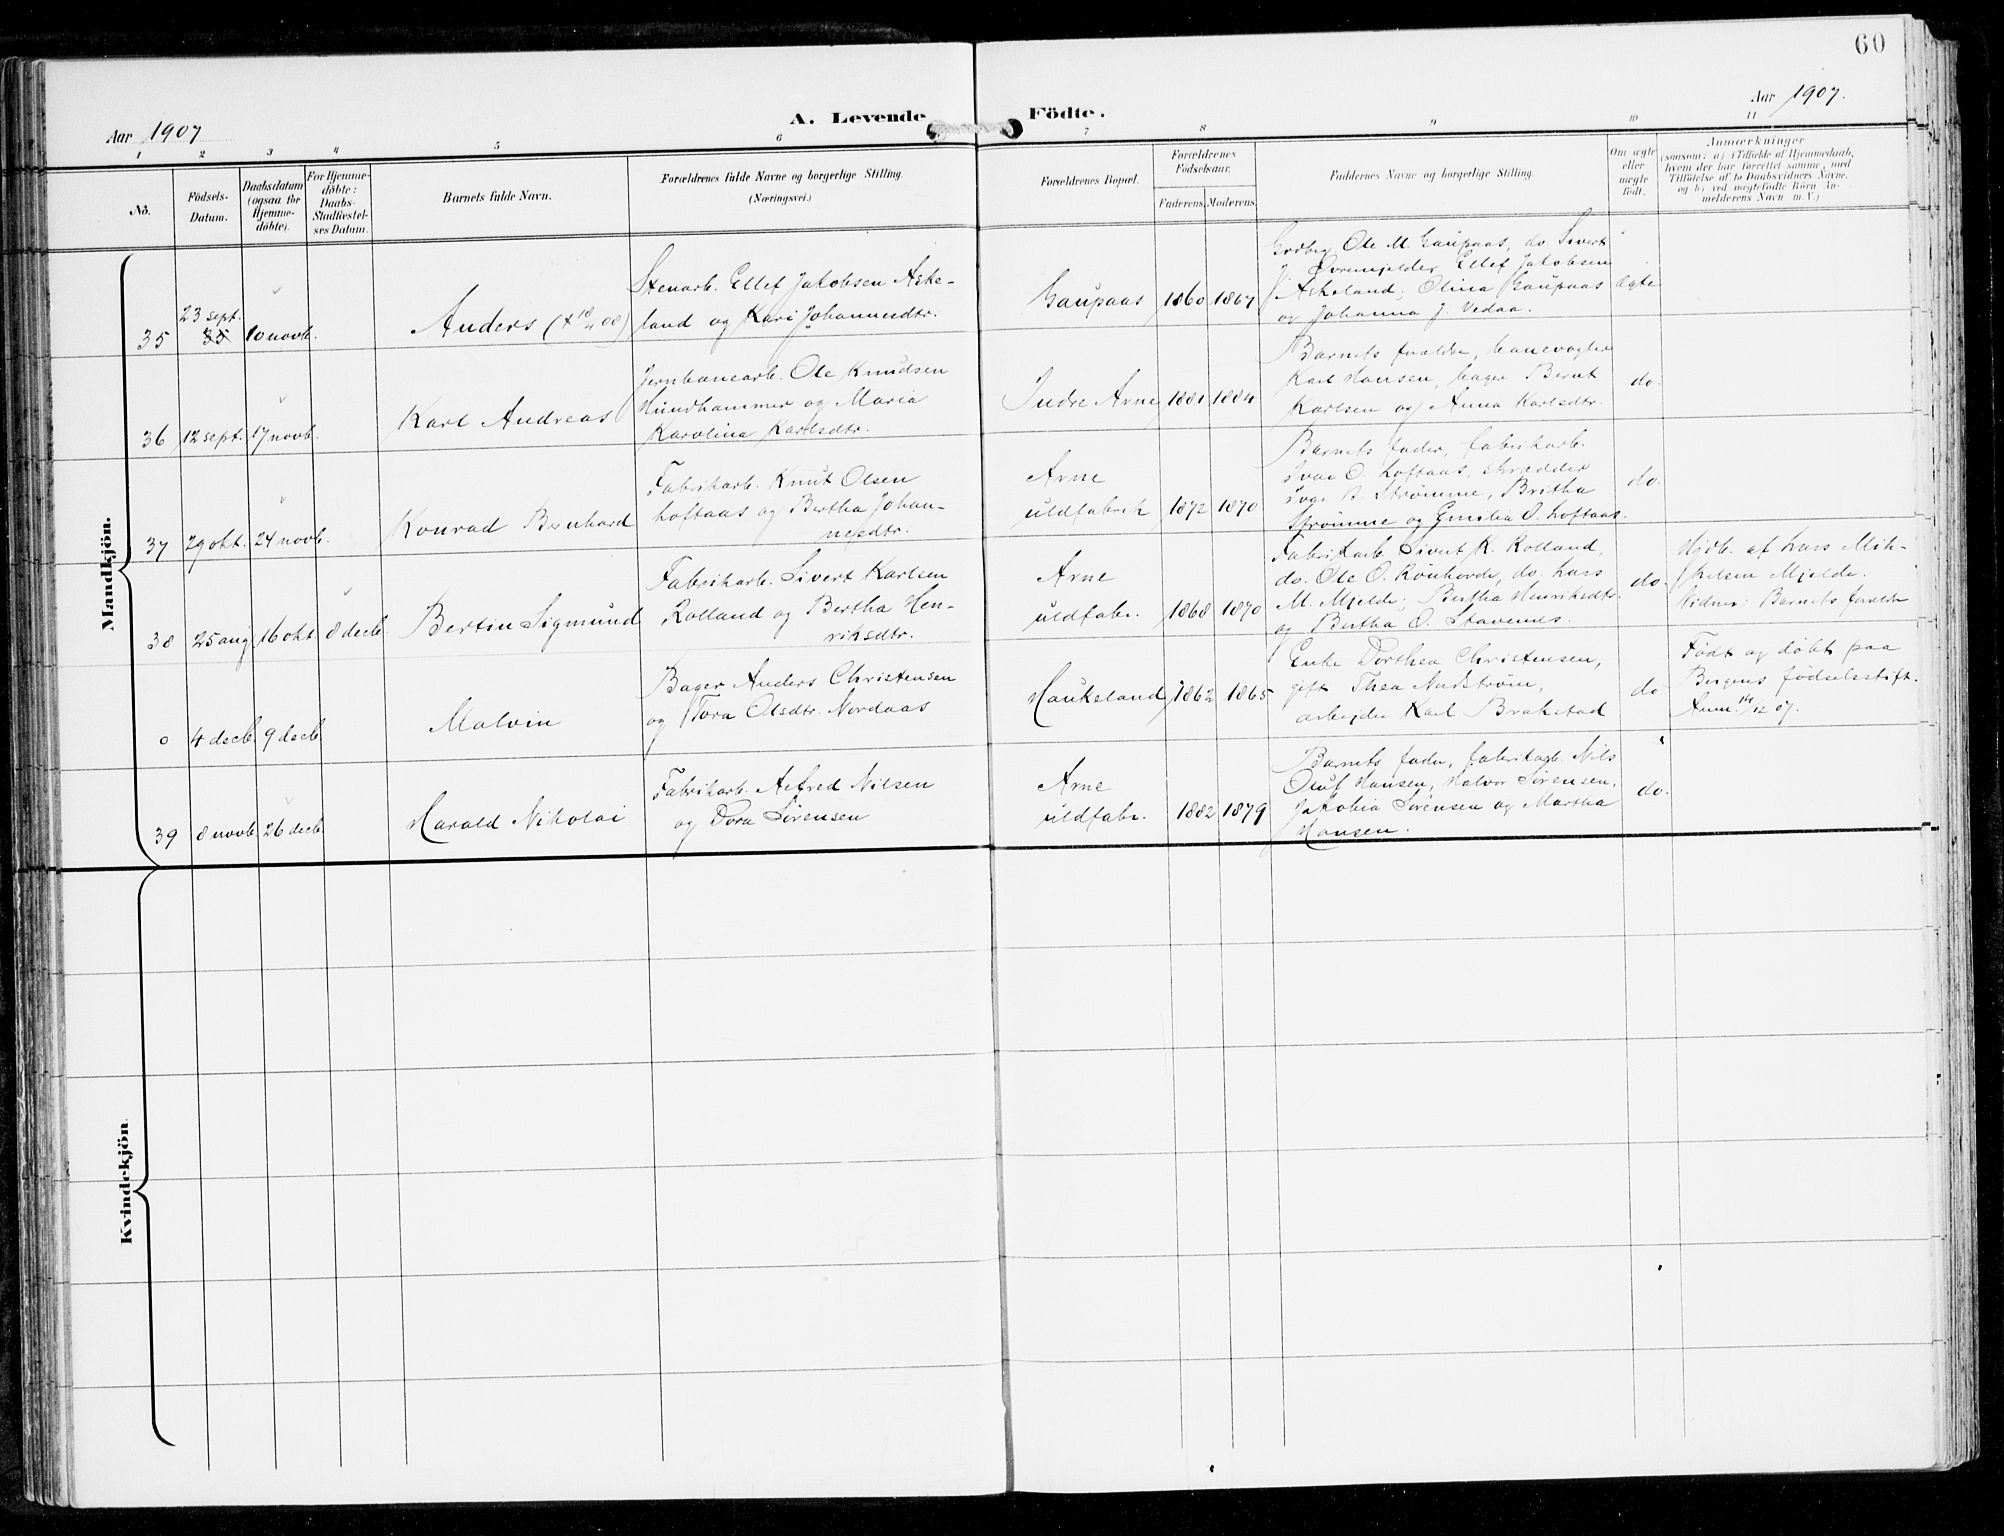 60
Aar 1907
A. Levende Födte.
Aar 1907.
1 2 3 4 5 6 7 8 9 10 11
No.
Födsels-
Datum.
Daabsdatum
(ogsaa for
Hjemme-
döbte).
For Hjemme-
döbte:
Daabs-
Stadfæstel-
ses Datum.
Barnets fulde Navn.
Forældrenes fulde Navne og borgerlige Stilling.
(Næringsvei.)
Forældrenes Bopæl.
Forældrenes
Födselsaar.
Faderens. Moderens.
Faddernes Navne og borgerlige Stilling.
Om ægte
eller
uægte
födt.
Anmærkninger
(saasom: a) i Tilfælde af Hjemmedaab,
hvem der har forrettet samme, med
Tilföielse af to Daabsvidners Navne.
og b) ved uægtefödte Börn An-
melderens Navn m.V.)
Mandkjön.
35
23 sept.
10 novb.
Anders (+ 10/4 08)
Stenarb. Ellef Jakobsen Aske-
land og Kari Johannesdtr.
Gaupaas
1860 1867
Grdbr. Ole M. Gaupaas, do Sivert
J. Övremjelder, Ellef Jakobsen
Askeland; Olina Gaupaas
og Johanna J. Vedaa.
ægte
36
12 sept.
17 novb.
Karl Andreas
Jernbanearb. Ole Knudsen
Hundhammer og Maria
Karolina Karlsdtr.
Indre Arne
1881 1884
Barnets forældre, banevogter
Karl Hansen, bager Bernt
Karlsen og Anna Karlsdtr.
do.
37
29 okt.
24 novb.
Konrad Bernhard
Fabrikarb. Knut Olsen
Loftaas og Bertha Johan-
nesdtr.
Arne
uldfabrik
1872 1870
Barnets fader, fabrikarb.
Ivar O. Loftaas, skrædder
Ivar B. Strømme, Britha
Strømme og Emilia O. Loftaas.
do.
38
25 aug
16 okt
8 decb.
Bertin Sigmund
Fabrikarb. Sivert Karlsen
Rolland og Bertha Hen-
riksdtr.
Arne
uldfabr.
1868 1870
Fabrikarb. Sivert K. Rolland,
do. Ole O. Rønhovde, do. Lars
M. Mjelde; Bertha Henriksdtr.
og Bertha O. Stavenes.
do.
Hjdb. af Lars Mik-
kelsen Mjelde.
Vidner: Barnets forældre
0
4 decb.
9 decb.
Malvin
Bager Anders Christensen
og Tora Olsdtr. Nordaas
Haukeland
1862 1865
Enke Dorthea Christensen,
gift Thea Nordstrøm,
arbejder Karl Brakstad
do
Født og døbt paa
Bergens fødselsstift.
Anm. 14/12 07.
39
8 novb.
26 decb.
Harald Nikolai
Fabrikarb. Alfred Nilsen
og Dora Sørensen
Arne
uldfabr.
1882 1879
Barnets fader, fabrikarb. Nils
Oluf Hansen, Halvor Sørensen,
Jakobia Sørensen og Martha
Hansen.
do.
Kvindekjön.